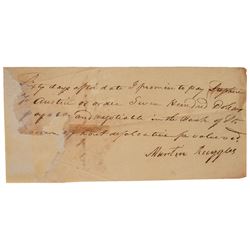 days after date I promise to pay Stephen
F Austin or order Seven Hundred Dollars
payable and negotiable in the Bank of
without defalcation for value
Martin Ruggles